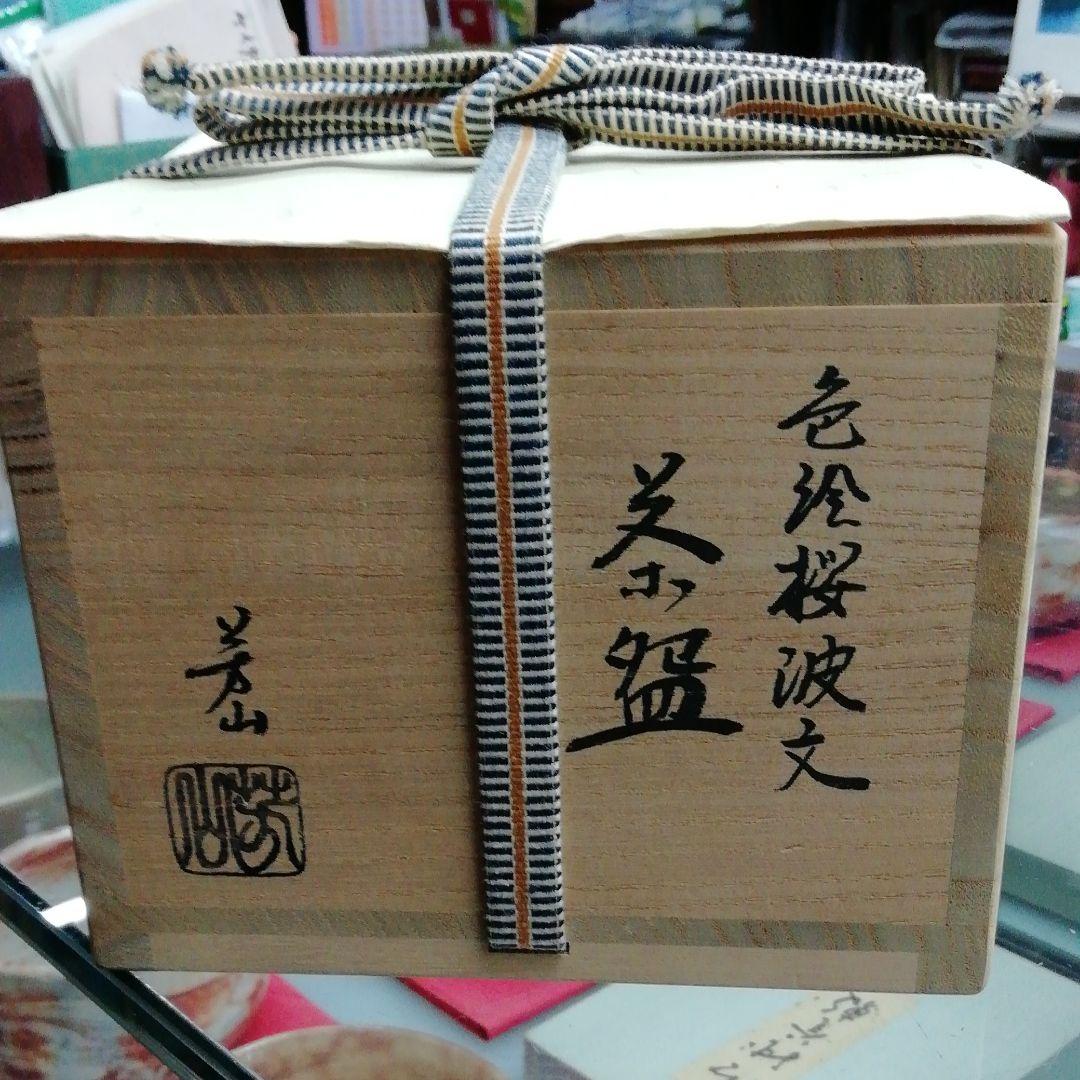 色絵桜波文
茶盌
芳山